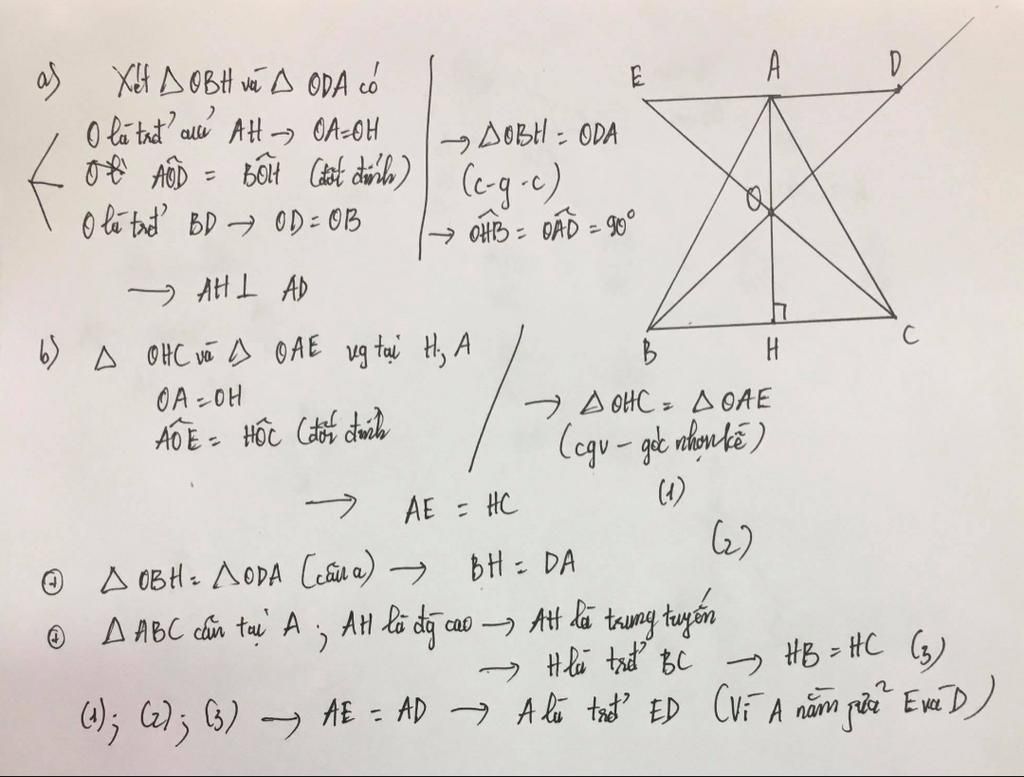 a) Xét △ OBH và △ ODA có
O là trđ' của AH → OA=OH
AÔD = BÔH (đối đỉnh)
O là trđ' BD → OD=OB
→ △OBH = ODA
(c-g-c)
→ OĤB = OÂD = 90°
→ AH⊥ AD
E A D
O
B H C
b) △ OHC và △ OAE vg tại H, A
OA=OH
AÔE = HÔC (đối đỉnh
→ △OHC = △OAE
(cgv - góc nhọn kề)
→ AE = HC
(1)
(2)
△OBH = △ODA (câu a) → BH = DA
△ABC cân tại A ; AH là đg cao → AH là trung tuyến
→ H là trđ' BC → HB = HC (3)
(1); (2); (3) → AE = AD → A là trđ' ED (Vì A nằm giữa E và D)